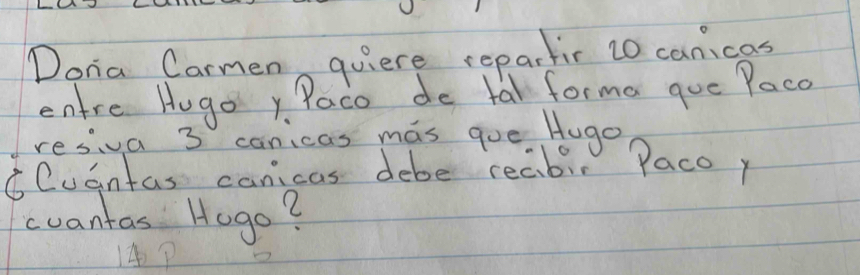 Doña Carmen quiere repartir 20 canicas
entre Hugo y Paco de tal forma que Paco
resiva 3 canicas más que Hugo
¿Cuántas canicas debe recibir Paco y
cuantas Hugo?